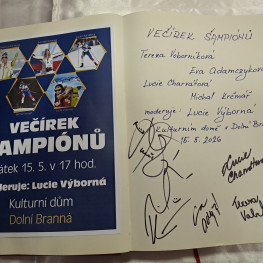 VEČÍREK
AMPIÓNŮ
átek 15. 5. v 17 hod.
deruje: Lucie Výborná
Kulturní dům
Dolní Branná
VEČÍREK ŠAMPIÓNŮ
Tereza Voborníková
Eva Adamczyková
Lucie Charvátová
Michal Krčmář
moderuje: Lucie Výborná
Kulturním domě v Dolní Bra
15. 5. 2026
Lucie